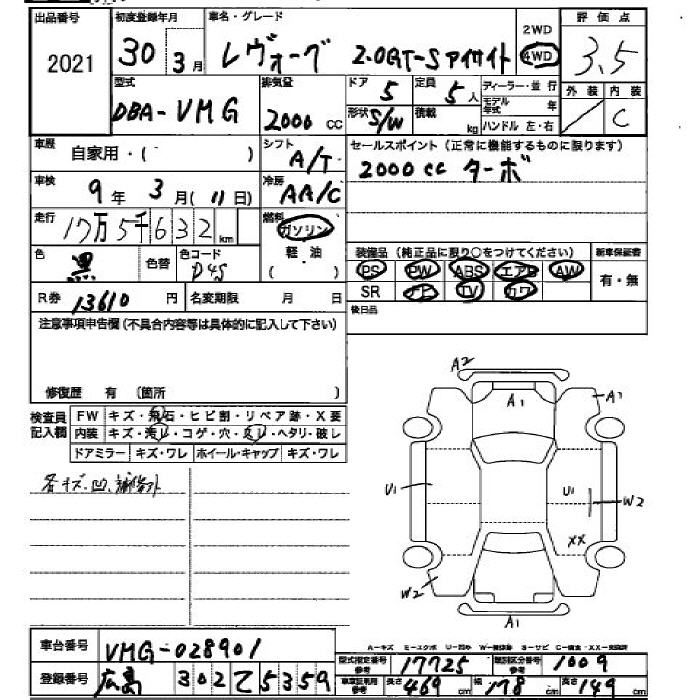 出品番号 初度登録年月 車名・グレード 2WD 評価点
2021 30 3月 レヴォーグ 2.0GT-S アイサイト 4WD 3.5
型式 排気量 ドア 定員 ディーラー・並行 外装 内装
DBA-VMG 2000 cc 5 5人 モデル年式 年
形状 S/W 積載 kg ハンドル 左・右 C
車歴 自家用・( ) シフト A/T セールスポイント (正常に機能するものに限ります)
車検 9年 3月(11日) 冷房 AA/C 2000cc ターボ
走行 17万5千632km 燃料 ガソリン
軽・油
色 黒 色替 色コード D4S ( ・ ) 装備品 (純正品に限り○をつけてください) 新車保証書
PS PW ABS エアB AW 有・無
R券 13610円 名変期限 月 日 SR ナビ TV カワ
後日品
注意事項申告欄(不具合内容等は具体的に記入して下さい)
修復歴 有 (箇所 )
検査員記入欄 FW キズ・飛石・ヒビ割・リペア跡・X要
内装 キズ・汚レ・コゲ・穴・スレ・ヘタリ・破レ
ドアミラー キズ・ワレ ホイール・キャップ キズ・ワレ
各キズ、凹、補修アト
A2
A1 A1
U1 U1 W2
XX
W2
A1
A=キズ U=凹み
車台番号 VMG-028901
登録番号 広島 302 て 5359
型式指定番号 参考 17725 類別区分番号 参考 1009
長さ 469cm 幅 178cm 高さ 149cm